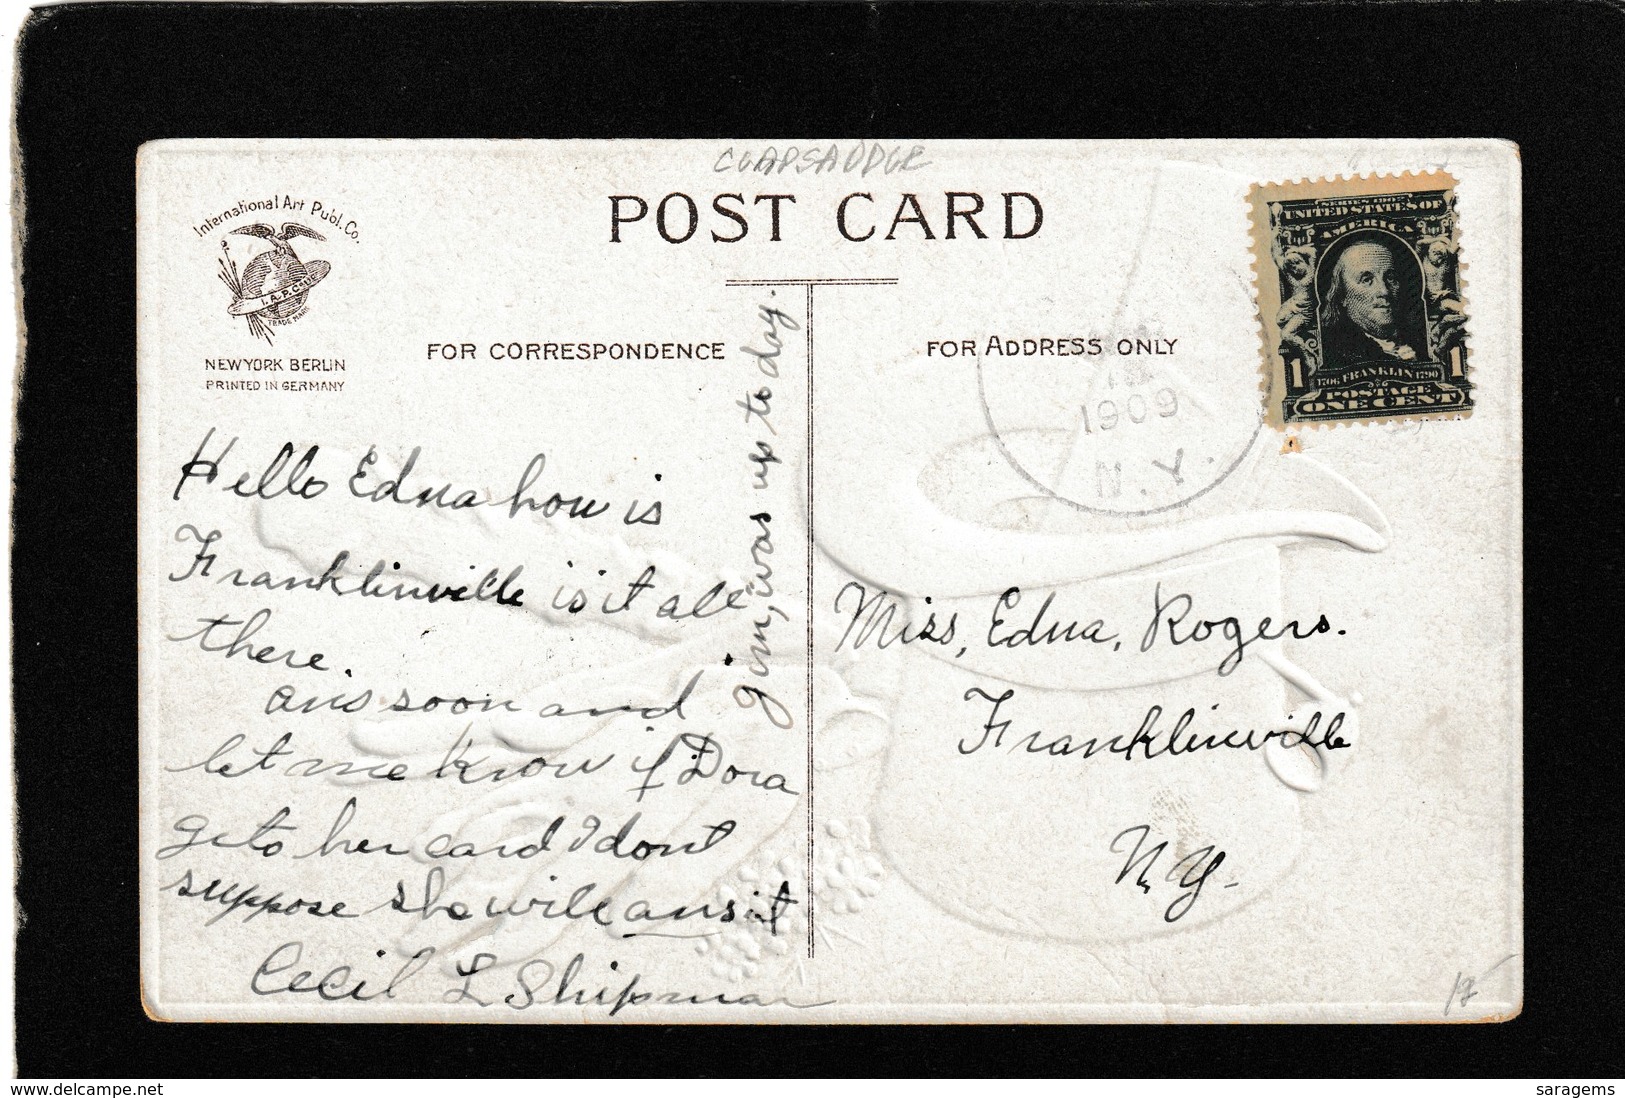 CLAPSADDLE
POST CARD
International Art Publ. Co.
I.A.P.Co.
TRADE MARK
NEW YORK BERLIN
PRINTED IN GERMANY
FOR CORRESPONDENCE
FOR ADDRESS ONLY
SERIES 1902
UNITED STATES OF
AMERICA
1 1
1706 FRANKLIN 1790
POSTAGE
ONE CENT
1909
N.Y.
Hello Edna how is
Franklinville is it all
there.
ans soon and
let me know if Dora
gets her card I dont
suppose she will ans it
Cecil L Shipman
Jim, was up to day.
Miss, Edna, Rogers.
Franklinville
N.Y.
www.delcampe.net
saragems